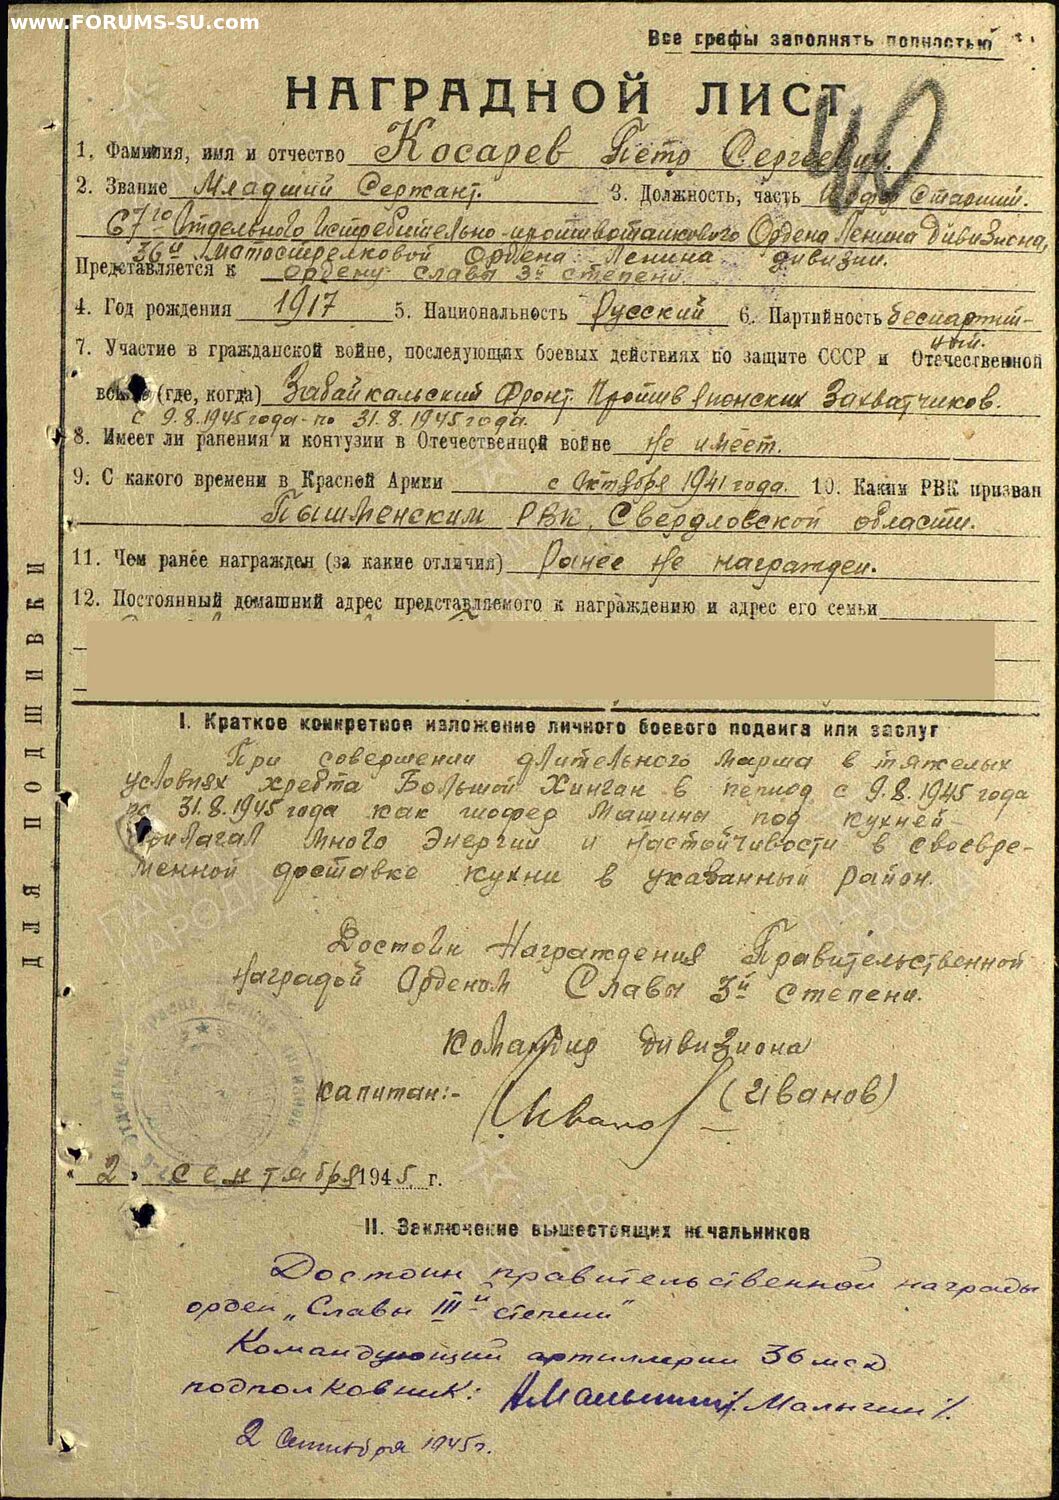 www.FORUMS-SU.com
Все графы заполнять полностью
НАГРАДНОЙ ЛИСТ
40
1. Фамилия, имя и отчество Косарев Петр Сергеевич.
2. Звание Младший Сержант. 3. Должность, часть Шофер Старший.
67го Отдельного Истребительно-противотанкового Ордена Ленина Дивизиона,
36й Мотострелковой Ордена Ленина дивизии.
Представляется к ордену славы 3й степени.
4. Год рождения 1917 5. Национальность Русский 6. Партийность беспартий-
ный.
7. Участие в гражданской войне, последующих боевых действиях по защите СССР и Отечественной
войне (где, когда) Забайкальский Фронт Против Японских Захватчиков.
с 9.8.1945 года - по 31.8.1945 года.
8. Имеет ли ранения и контузии в Отечественной войне Не имеет.
9. С какого времени в Красной Армии с Октября 1941 года. 10. Каким РВК призван
Пышменским РВК, Свердловской области.
11. Чем ранее награжден (за какие отличия) Ранее не награжден.
12. Постоянный домашний адрес представляемого к награждению и адрес его семьи
ДЛЯ ПОДШИВКИ
I. Краткое конкретное изложение личного боевого подвига или заслуг
При совершении длительного марша в тяжелых
условиях хребта Большой Хинган в период с 9.8.1945 года
по 31.8.1945 года как шофер Машины под кухней -
Прилагал много Энергии и настойчивости в своевре-
менной доставке кухни в указанный район.
Достоин Награждения Правительственной
Наградой Орденом Славы 3й степени.
Командир Дивизиона
капитан:- Иванов (Иванов)
"2" сентября 1945 г.
II. Заключение вышестоящих начальников
Достоин правительственной награды
орден „Славы IIIй степени"
Командующий артиллерии 36 мсд
подполковник: АМалыгин /Малыгин/.
2 Сентября 1945г.
ПАМЯТЬ НАРОДА